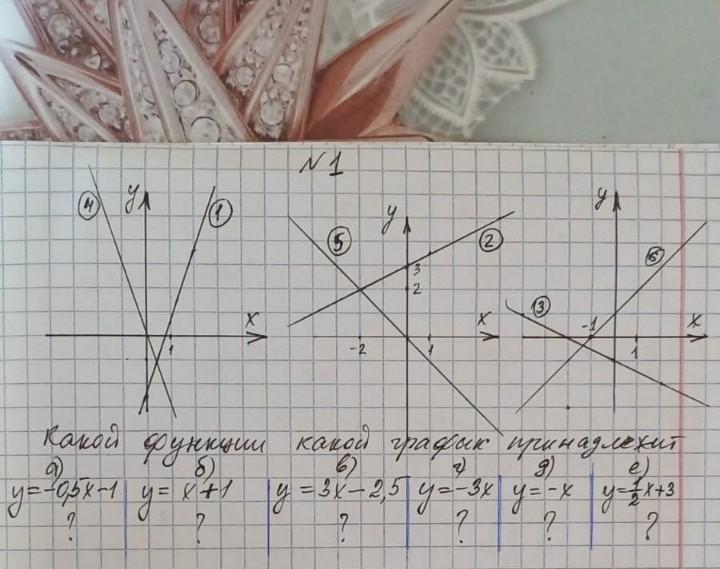 N1
④ y ① y ⑤ ② y ⑥
3
2
x x ③ -1 x
1 -2 1 1
Какой функции какой график принадлежит
а) б) в) г) д) е)
y=-0,5x-1 y=x+1 y=3x-2,5 y=-3x y=-x y=1/2x+3
? ? ? ? ? ?